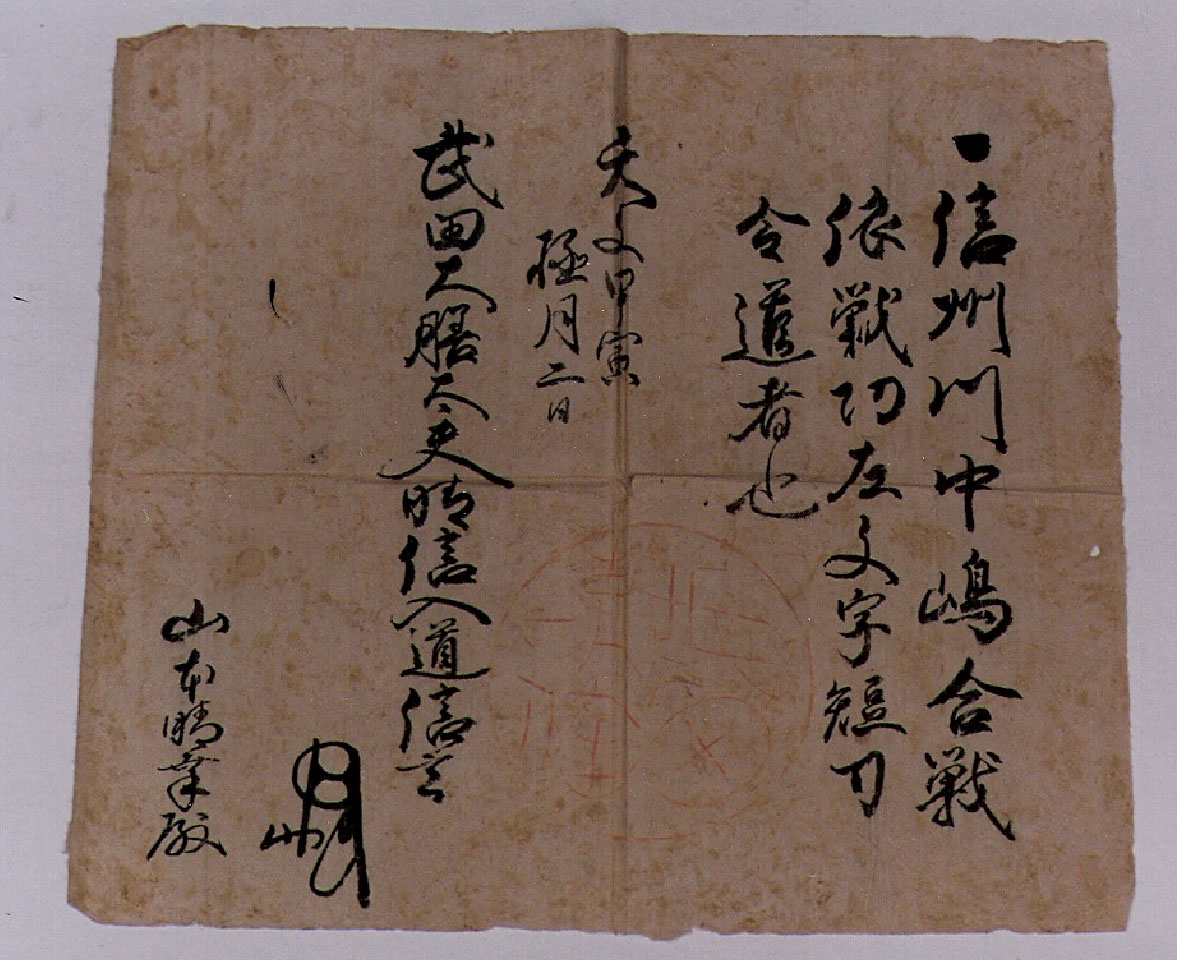 一信州川中嶋合戦
依戦功左文字短刀
令進者也
天文甲寅
極月二日
武田大膳大夫晴信入道信玄
山本晴幸殿